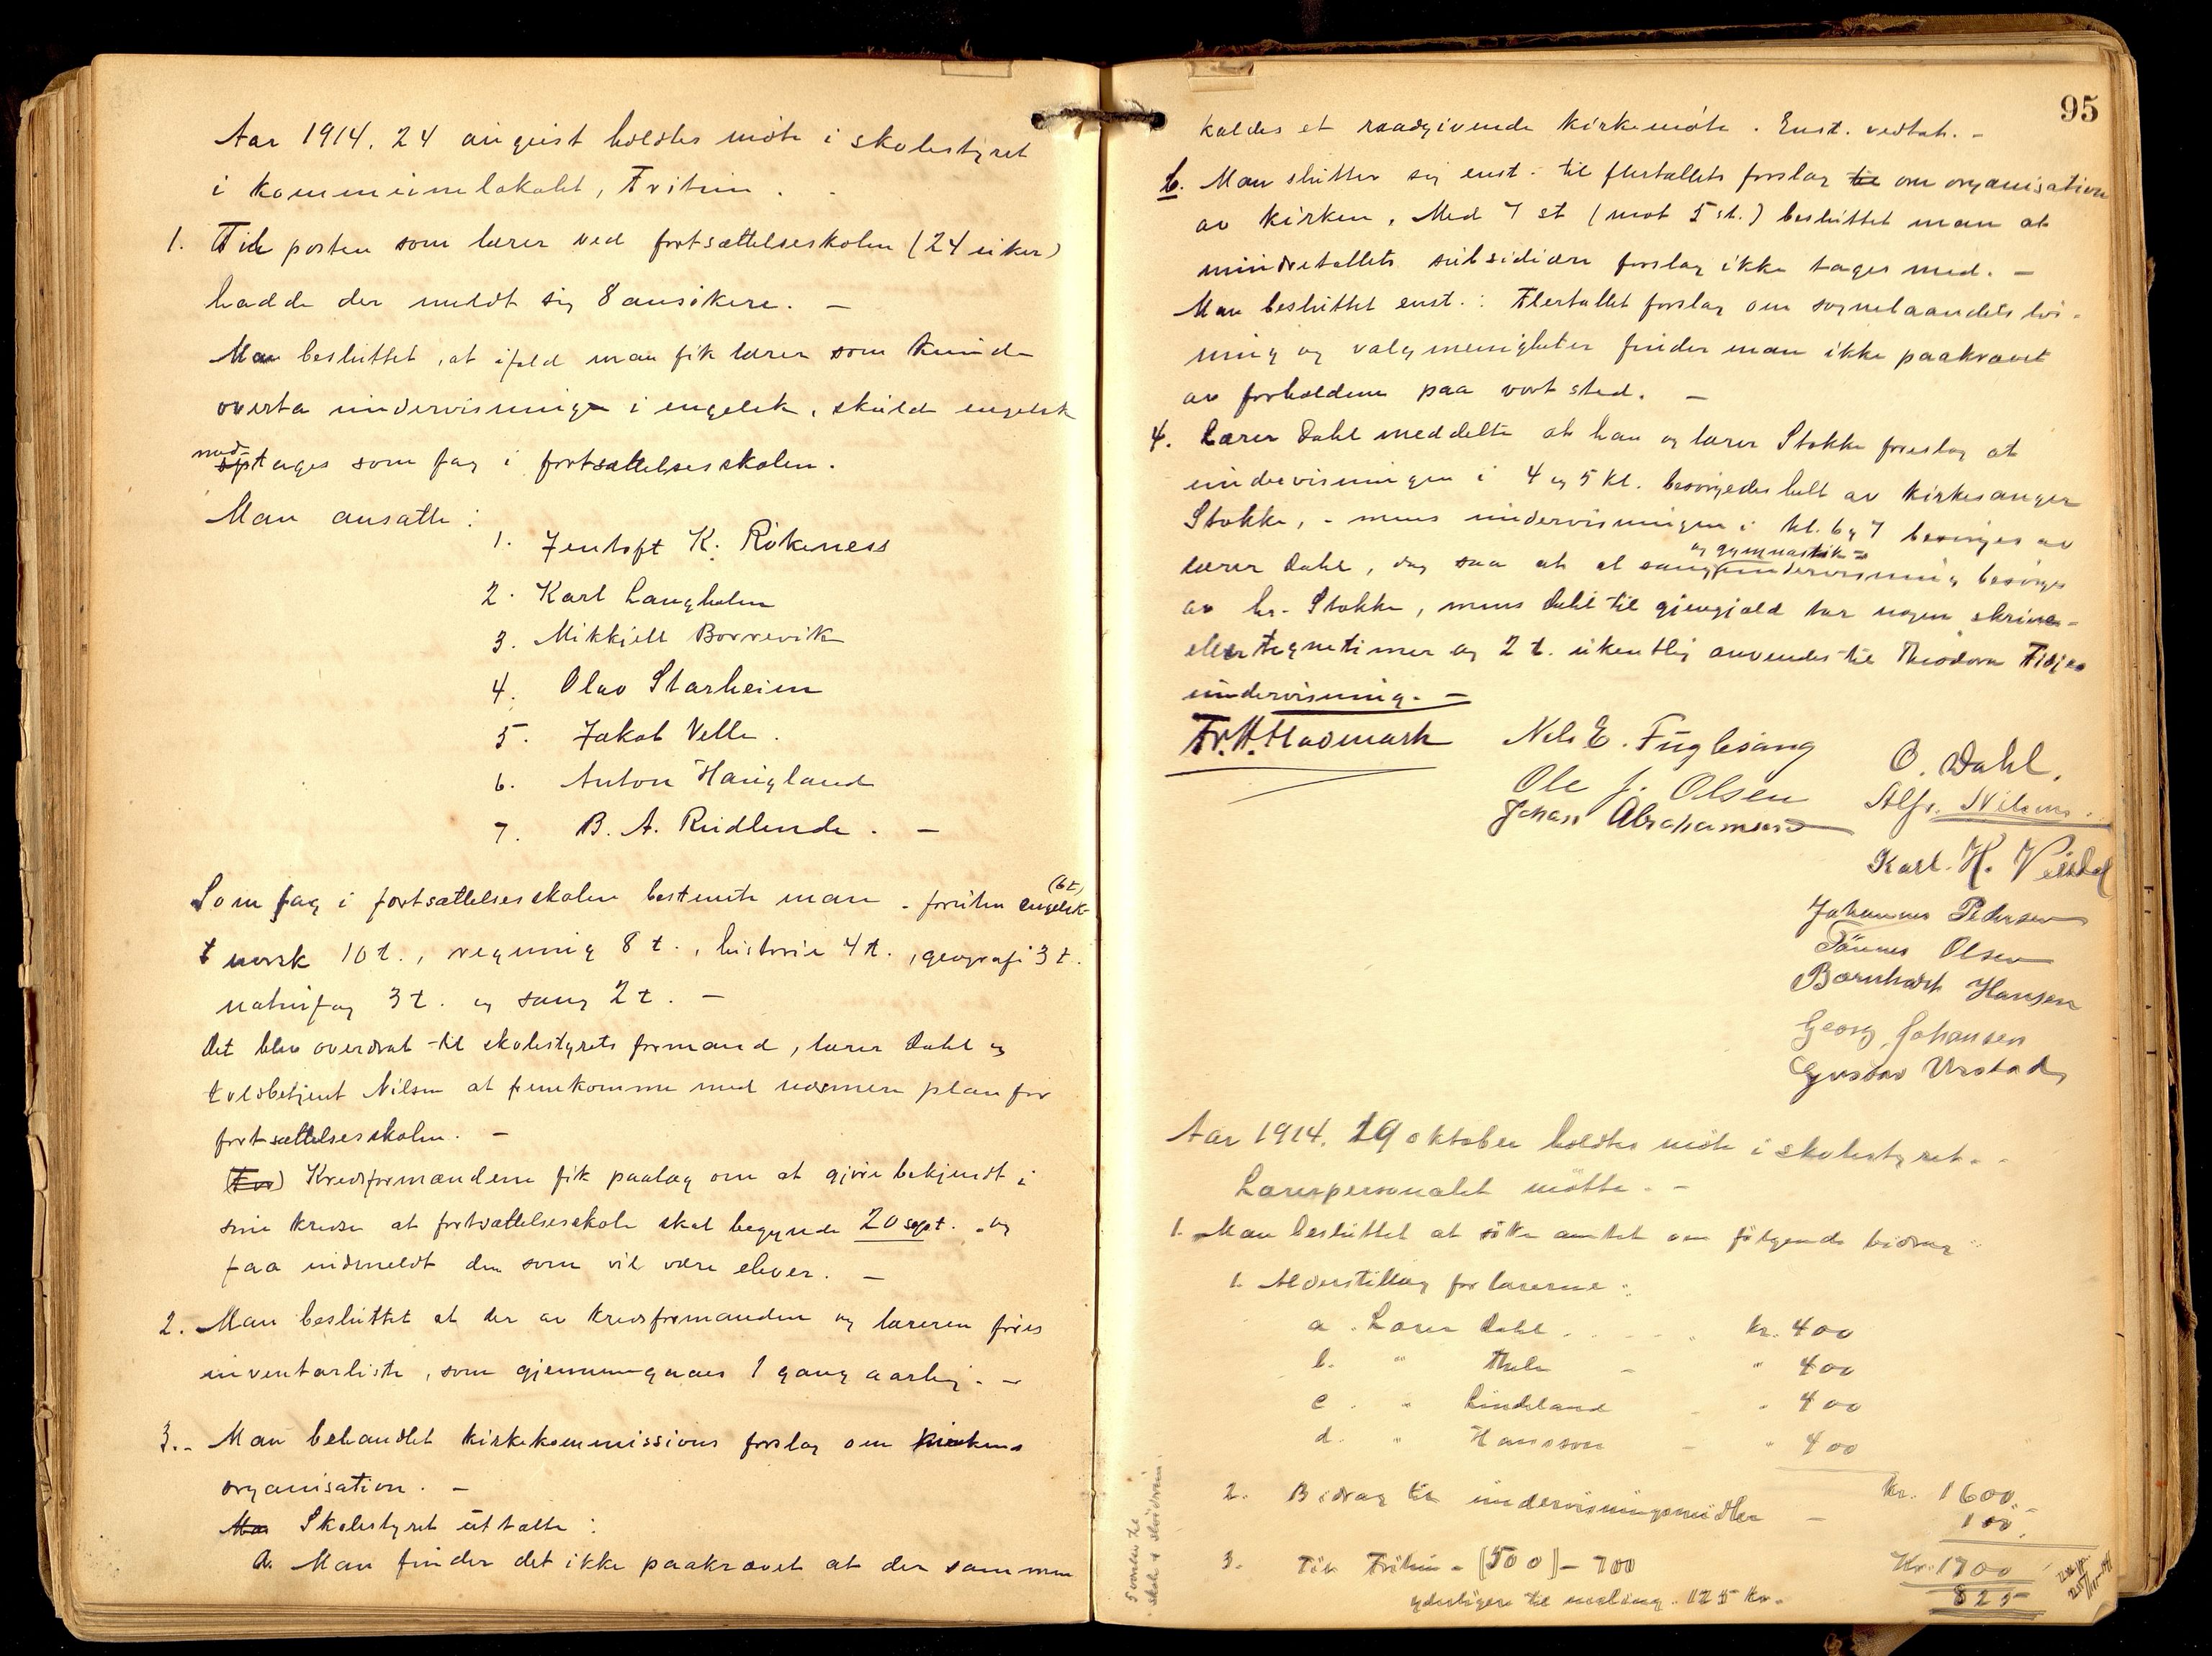 Aar 1914. 24 august holdtes möte i skolestyret
i kommunelokalet, Fritun.
1. Til posten som lærer ved fortsættelseskolen (24 uker)
hadde der meldt sig 8 ansökere. -
Man besluttet, at ifald man fik lærer som kunde
overta undervisninge i engelsk, skulde engelsk
med
optages som fag i fortsættelsesskolen.
Man ansatte:
1. Jentoft K. Rökeness
2. Karl Langholm
3. Mikkjell Borrevik
4. Olav Starheim
5. Jakob Velle.
6. Anton Haugland
7. B. A. Rudlende. -
(6t)
Som fag i fortsættelsesskolen bestemte man - foruten engelsk
norsk 10 t., regning 8 t., historie 4 t., geografi 3 t.
naturfag 3 t. og sang 2 t. -
Det blev overdrat til skolestyrets formand, lærer Dahl og
toldbetjent Nilsen at fremkomme med nærmere plan for
fortsættelsesskolen. -
Kredsformændene fik paalæg om at gjöre bekjendt i
sine kredse at fortsættelsesskole skal begynde 20 sept. og
faa indmeldt dem som vil være elever. -
2. Man besluttet at der av kredsformanden og læreren föres
inventarliste, som gjennemgaaes 1 gang aarlig. -
3. - Man behandlet kirkekommissions forslag om kirkens
organisation. -
Man Skolestyret uttalte:
a. Man finder det ikke paakrævet at der sammen
95
kaldes et raadgivende kirkemöte. Enst. vedtat. -
b. Man slutter sig enst. til flertallets forslag til om organisation
av kirken. Med 7 st (mot 5 st.) besluttet man at
mindretallets subsidiære forslag ikke tages med. -
Man besluttet enst.: Flertallet forslag om sognebaandets lös-
ning og valgmenigheter finder man ikke paakrævet
av forholdene paa vort sted. -
4. Lærer Dahl meddelte at han og lærer Stokke foreslog at
undervisningen i 4 og 5 kl. besörgedes helt av kirkesanger
Stokke, - mens undervisningen i kl. 6 og 7 besörges av
og gymnastik-
lærer Dahl, dog saa at al sangundervisning besörges
av hr. Stokke, mens Dahl til gjengjæld tar nogen skrive-
eller tegnetimer og 2 t. ukentlig anvendes til Theodora Fidjes
undervisning. -
Nels E. Fuglesang
O. Dahl.
Ole J. Olsen
Alfr. Nilsen.
Johan Abrahamsen
Karl. H.
Johannes Pedersen
Tönnes Olsen
Bernhardt Hansen
Georg Johansen
Gustav Urstad
Aar 1914. 19 oktober holdtes möte i skolestyret. -
Lærerpersonalet mötte. -
1. Man besluttet at söke amtet om fölgende bidrag:
1. Alderstillæg for lærerne:
a. Lærer Dahl . . . . kr. 400
b. " Thele - " 400
c. " Lindeland - " 400
d. " Hansson - " 400
Kr. 1600.-
2. Bidrag til undervisningsmidler - 100.
3. Til Fritun - (500) - 700 Kr. 1700
yderligere til maling. 125 kr. 825